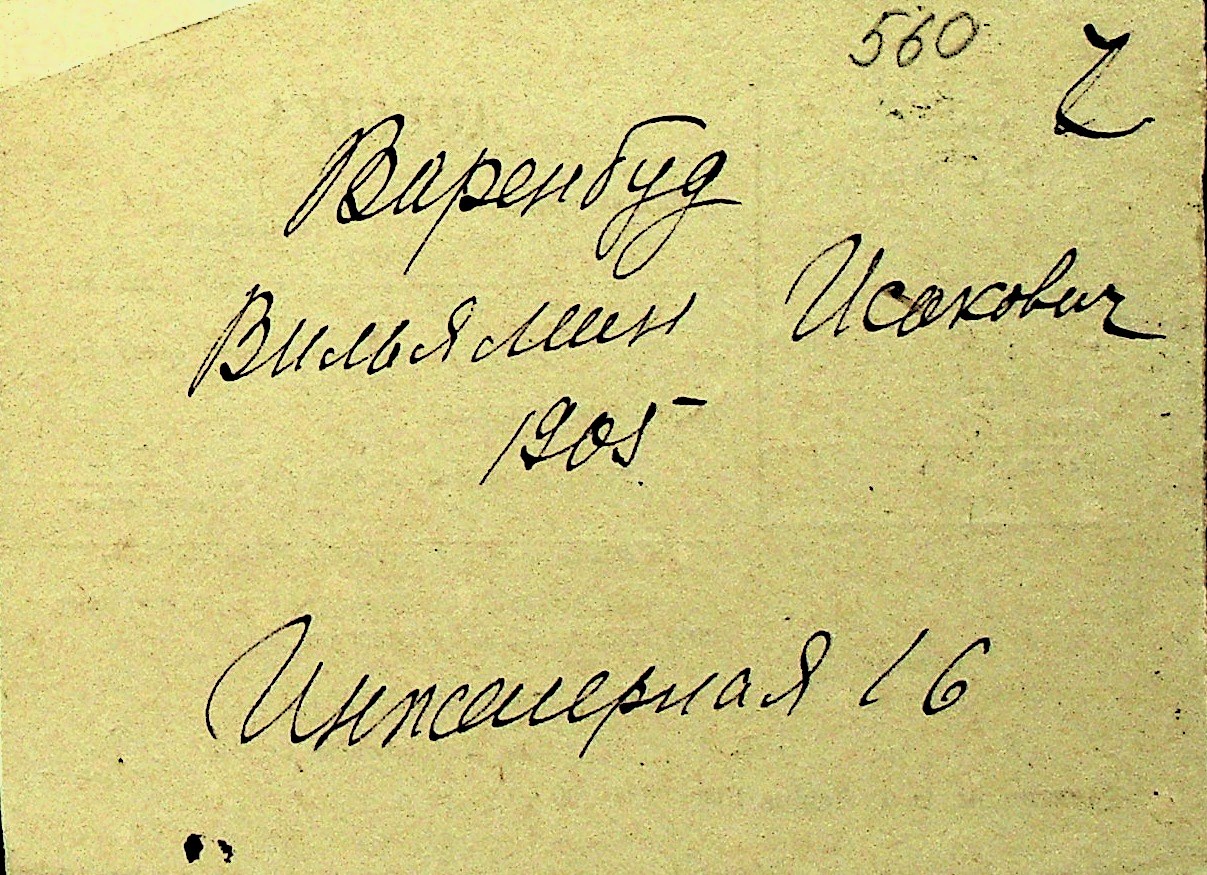 560
Варенбуд
Вильямин Исакович
1905
Инженерная 16